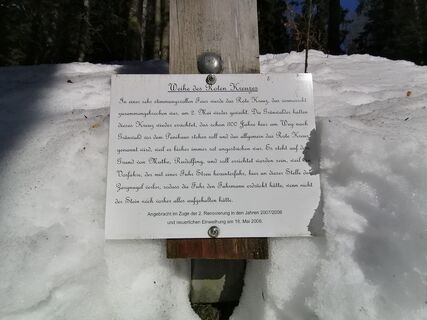 Weihe des Roten Kreuzes
In einer sehr stimmungsvollen Feier wurde das Rote Kreuz, das vermorscht
zusammengebrochen war, am 2. Mai wieder geweiht. Die Grünwalder hatten
dieses Kreuz wieder errichtet, das schon 1100 Jahre hier am Weg nach
Grünwald vor dem Forsthaus stehen soll und das allgemein das Rote Kreuz
genannt wird, weil es bisher immer rot angestrichen war. Es steht auf dem
Grund von Muthe, Riedelfing, und soll errichtet worden sein, weil ein
Vorfahre, der mit einer Fuhr Steen herunterfuhr, hier an dieser Stelle den
Zurgnagel verlor, sodass die Fuhr den Fuhrmann erdrückt hätte, wenn nicht
der Stein noch vorher alles aufgehalten hätte.
Angebracht im Zuge der 2. Renovierung in den Jahren 2007/2008
und neuerlichen Einweihung am 18. Mai 2008.